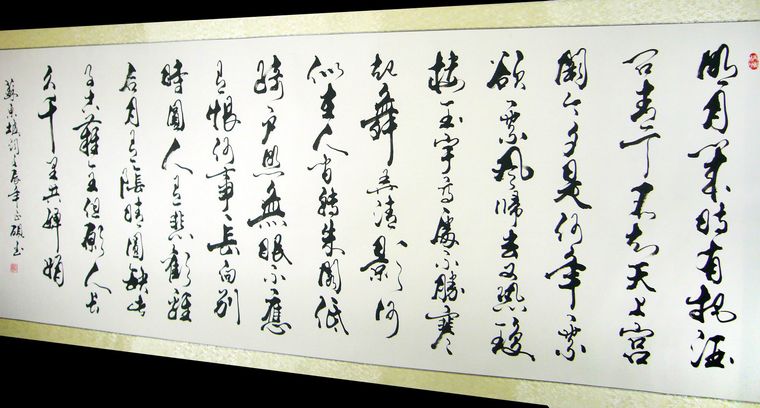 明月幾時有把酒
问青天不知天上宮
闕今夕是何年我
欲乘風歸去又恐瓊
樓玉宇高處不勝寒
起舞弄清影何
似在人間轉朱閣低
綺戶照無眠不應
有恨何事長向別
時圓人有悲歡離
合月有陰晴圓缺此
事古難全但願人長
久千里共嬋娟
蘇東坡詞 辰年